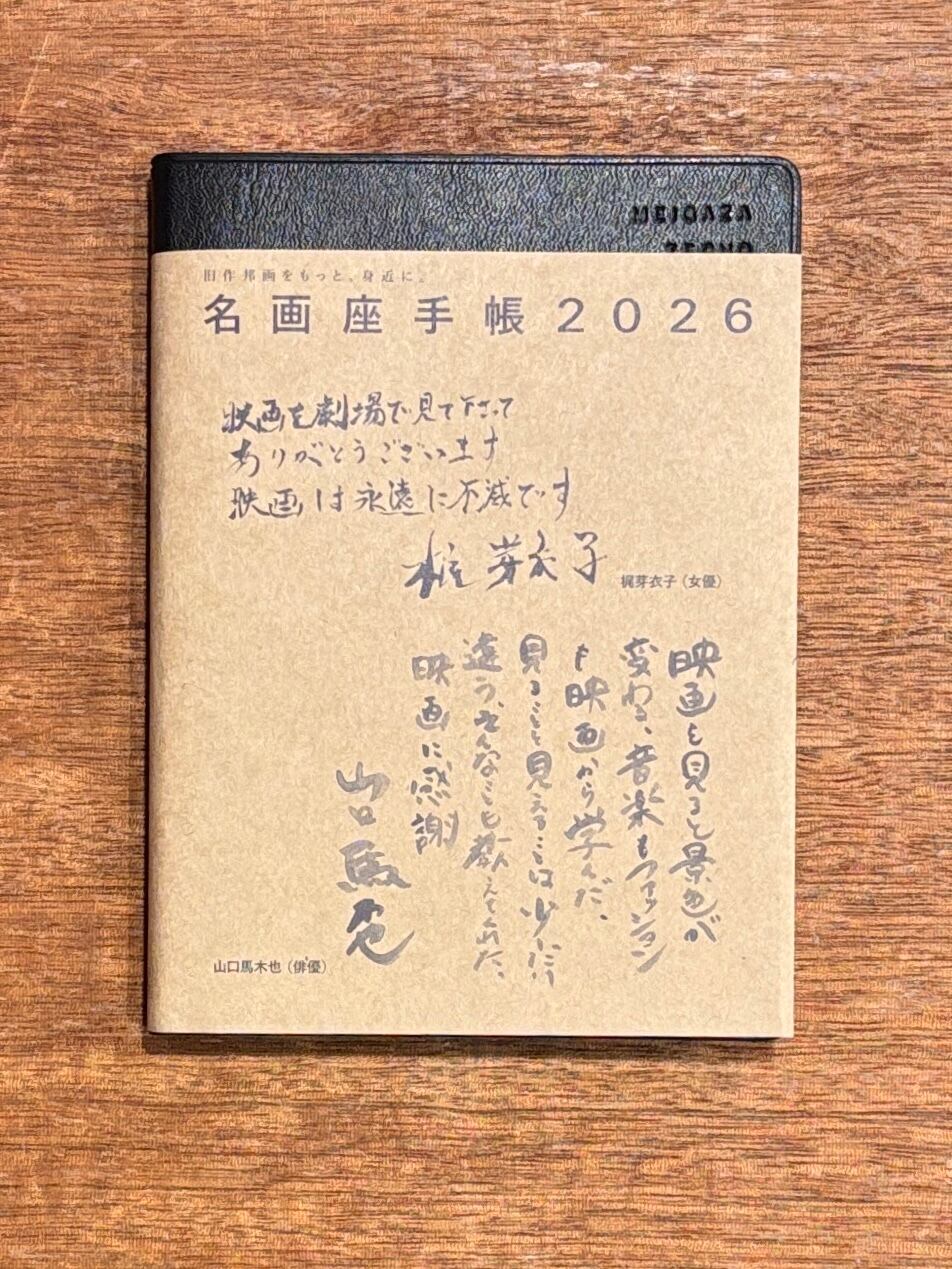 MEIGAZA
TECHO
旧作邦画をもっと、身近に。
名画座手帳2026
映画を劇場で見て下さって
ありがとうございます
映画は永遠に不滅です
梶芽衣子
梶芽衣子（女優）
映画を見ると景色が
変わる、音楽もファッション
も映画から学んだ、
見ることと見えることは少したけ
違う、そんなことも教えてくれた、
映画に感謝
山口馬木也
山口馬木也（俳優）